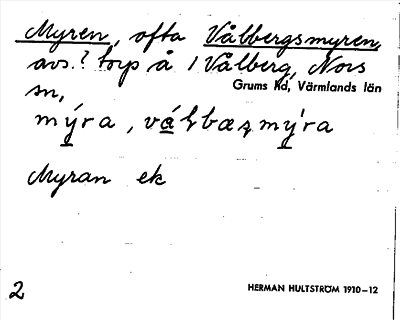 Myren, ofta Vålbergsmyren,
avs.? torp å 1 Vålberg, Nors
sn,
Grums hd, Värmlands län
mý̱ra, vá̱ɫbæʒmỳ̱ra
Myran ek
2
HERMAN HULTSTRÖM 1910–12